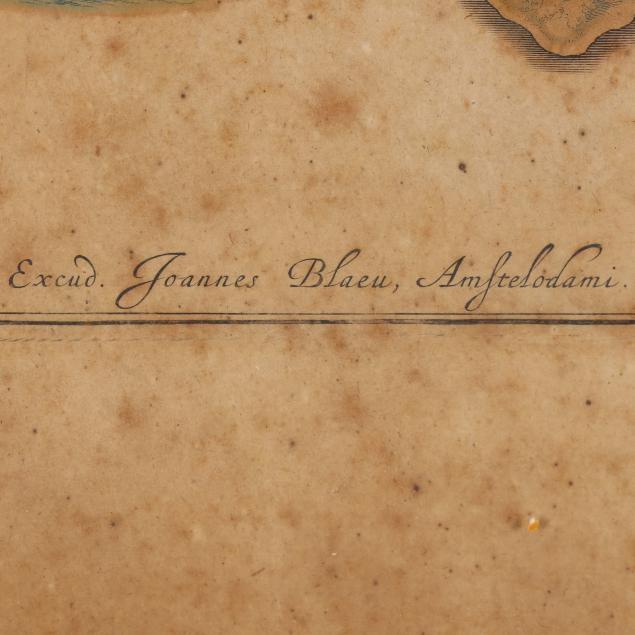 Excud. Joannes Blaeu, Amſtelodami.